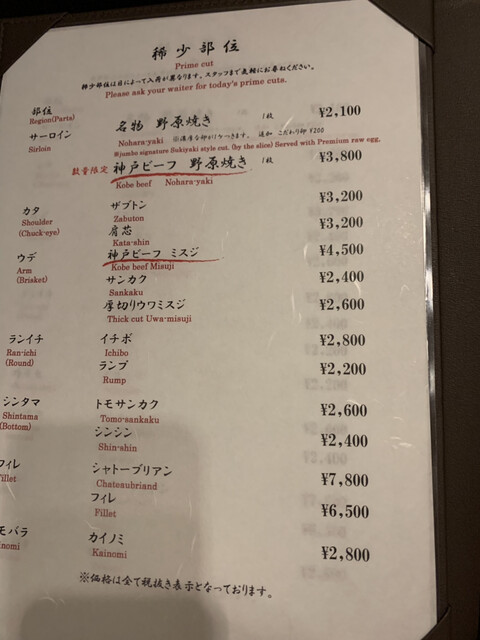 稀少部位
Prime cut
稀少部位は日によって入荷が異なります。スタッフまで気軽にお尋ねください。
Please ask your waiter for today's prime cuts.
部位
Region(Parts)
サーロイン
Sirloin
名物 野原焼き 1枚 ¥2,100
Nohara-yaki ※濃厚香卵が1ケつきます。追加 こだわり卵 ¥200
Mjumbo signature Sukiyaki style cut. (by the slice) Served with Premium raw egg.
数量限定 神戸ビーフ 野原焼き 1枚 ¥3,800
Kobe beef Nohara-yaki
カタ
Shoulder
(Chuck-eye)
ザブトン ¥3,200
Zabuton
肩芯 ¥3,200
Kata-shin
ウデ
Arm
(Brisket)
神戸ビーフ ミスジ ¥4,500
Kobe beef Misuji
サンカク ¥2,400
Sankaku
厚切りウワミスジ ¥2,600
Thick cut Uwa-misuji
ランイチ
Ran-ichi
(Round)
イチボ ¥2,800
Ichibo
ランプ ¥2,200
Rump
シンタマ
Shintama
(Bottom)
トモサンカク ¥2,600
Tomo-sankaku
シンシン ¥2,400
Shin-shin
フィレ
Fillet
シャトーブリアン ¥7,800
Chateaubriand
フィレ ¥6,500
Fillet
モバラ
inomi
カイノミ ¥2,800
Kainomi
※価格は全て税抜き表示となっております。